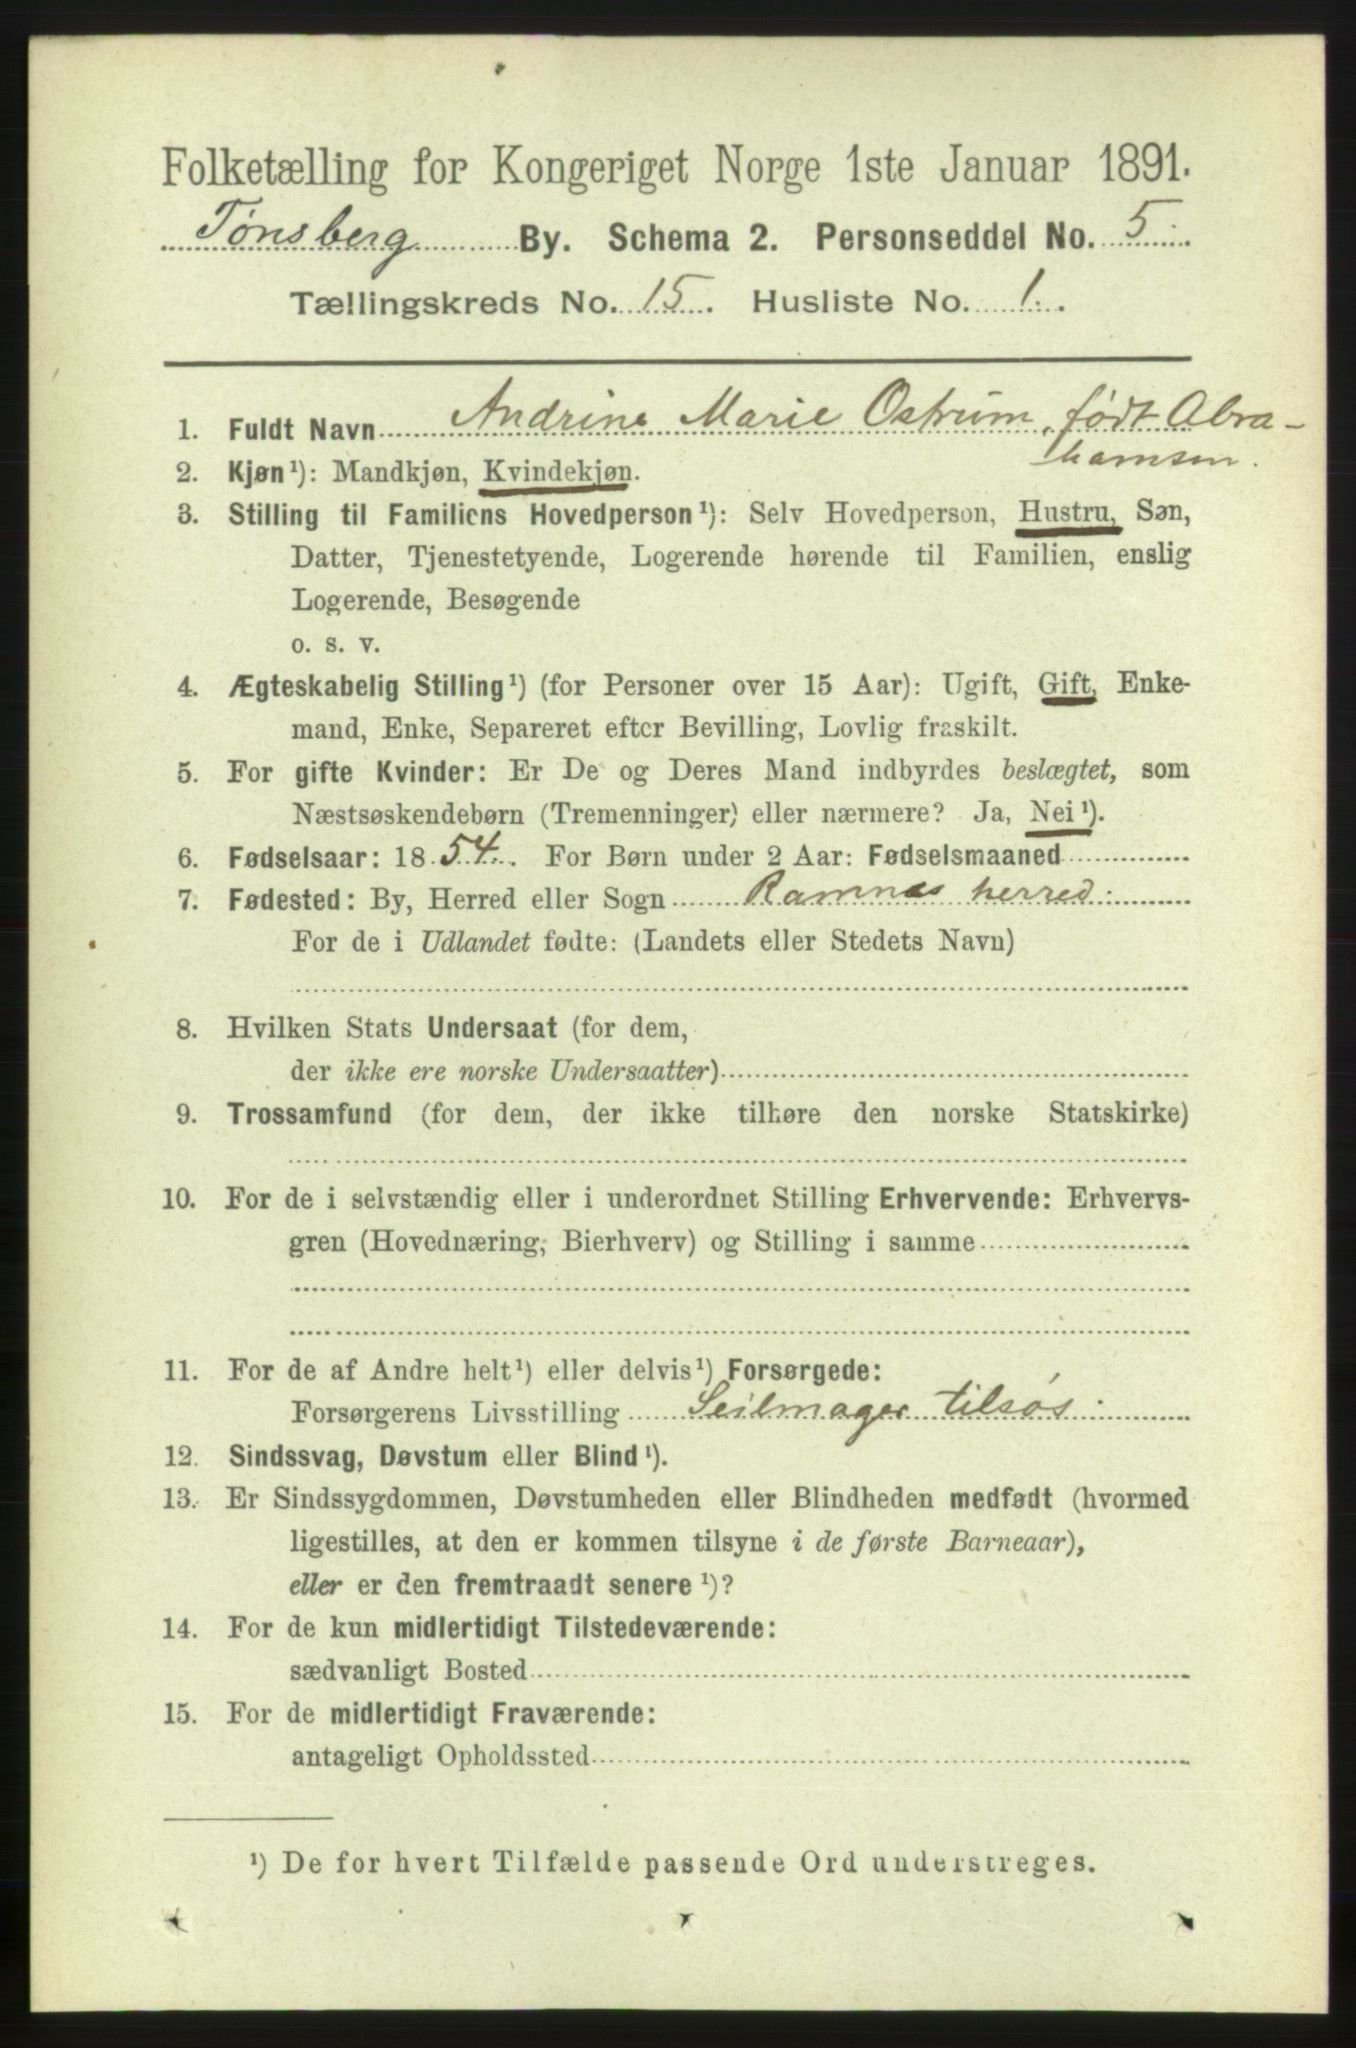 Folketælling for Kongeriget Norge 1ste Januar 1891.
Tønsberg By. Schema 2. Personseddel No. 5
Tællingskreds No. 15. Husliste No. 1.
1. Fuldt Navn Andrine Marie Ostrum, født Abra-
hamsen.
2. Kjøn¹): Mandkjøn, Kvindekjøn.
3. Stilling til Familiens Hovedperson¹): Selv Hovedperson, Hustru, Søn,
Datter, Tjenestetyende, Logerende hørende til Familien, enslig
Logerende, Besøgende
o. s. v.
4. Ægteskabelig Stilling¹) (for Personer over 15 Aar): Ugift, Gift, Enke-
mand, Enke, Separeret efter Bevilling, Lovlig fraskilt.
5. For gifte Kvinder: Er De og Deres Mand indbyrdes beslægtet, som
Næstsøskendebørn (Tremenninger) eller nærmere? Ja, Nei¹).
6. Fødselsaar: 1854. For Børn under 2 Aar: Fødselsmaaned
7. Fødested: By, Herred eller Sogn Ramnes herred.
For de i Udlandet fødte: (Landets eller Stedets Navn)
8. Hvilken Stats Undersaat (for dem,
der ikke ere norske Undersaatter)
9. Trossamfund (for dem, der ikke tilhøre den norske Statskirke)
10. For de i selvstændig eller i underordnet Stilling Erhvervende: Erhvervs-
gren (Hovednæring, Bierhverv) og Stilling i samme
11. For de af Andre helt¹) eller delvis¹) Forsørgede:
Forsørgerens Livsstilling Seilmager tilsøs
12. Sindssvag, Døvstum eller Blind¹).
13. Er Sindssygdommen, Døvstumheden eller Blindheden medfødt (hvormed
ligestilles, at den er kommen tilsyne i de første Barneaar),
eller er den fremtraadt senere¹)?
14. For de kun midlertidigt Tilstedeværende:
sædvanligt Bosted
15. For de midlertidigt Fraværende:
antageligt Opholdssted
¹) De for hvert Tilfælde passende Ord understreges.